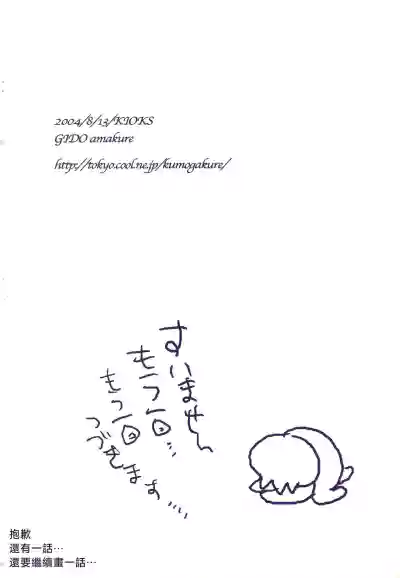 2004/8/13/KIOKS
GIDO amakure
http://tokyo.cool.ne.jp/kumogakure/
すいません
もう一回…
もう一回
つづきます….
抱歉
還有一話…
還要繼續畫一話…